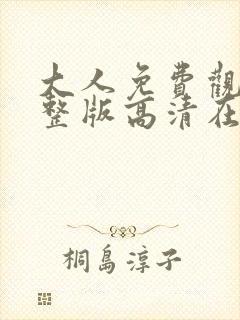 大人免費觀
整版高清在
桐島淳子